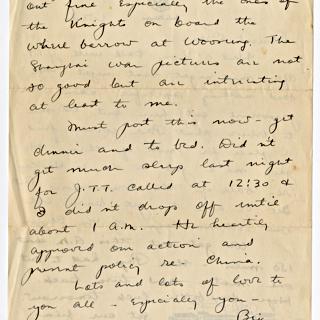 out fine. Especially the ones of
the Knights on board the
wheel barrow at Woosung. The
Shanghai war pictures are not
so good but are intriguing
at least to me.
Must post this now - get
dinner and to bed. Didn't
get much sleep last night
for J.T.T. called at 12:30 &
I didn't drop off until
about 1 A.M. He heartily
approved our action and
present policy re - China.
Lots and lots of love to
you all - Especially you -